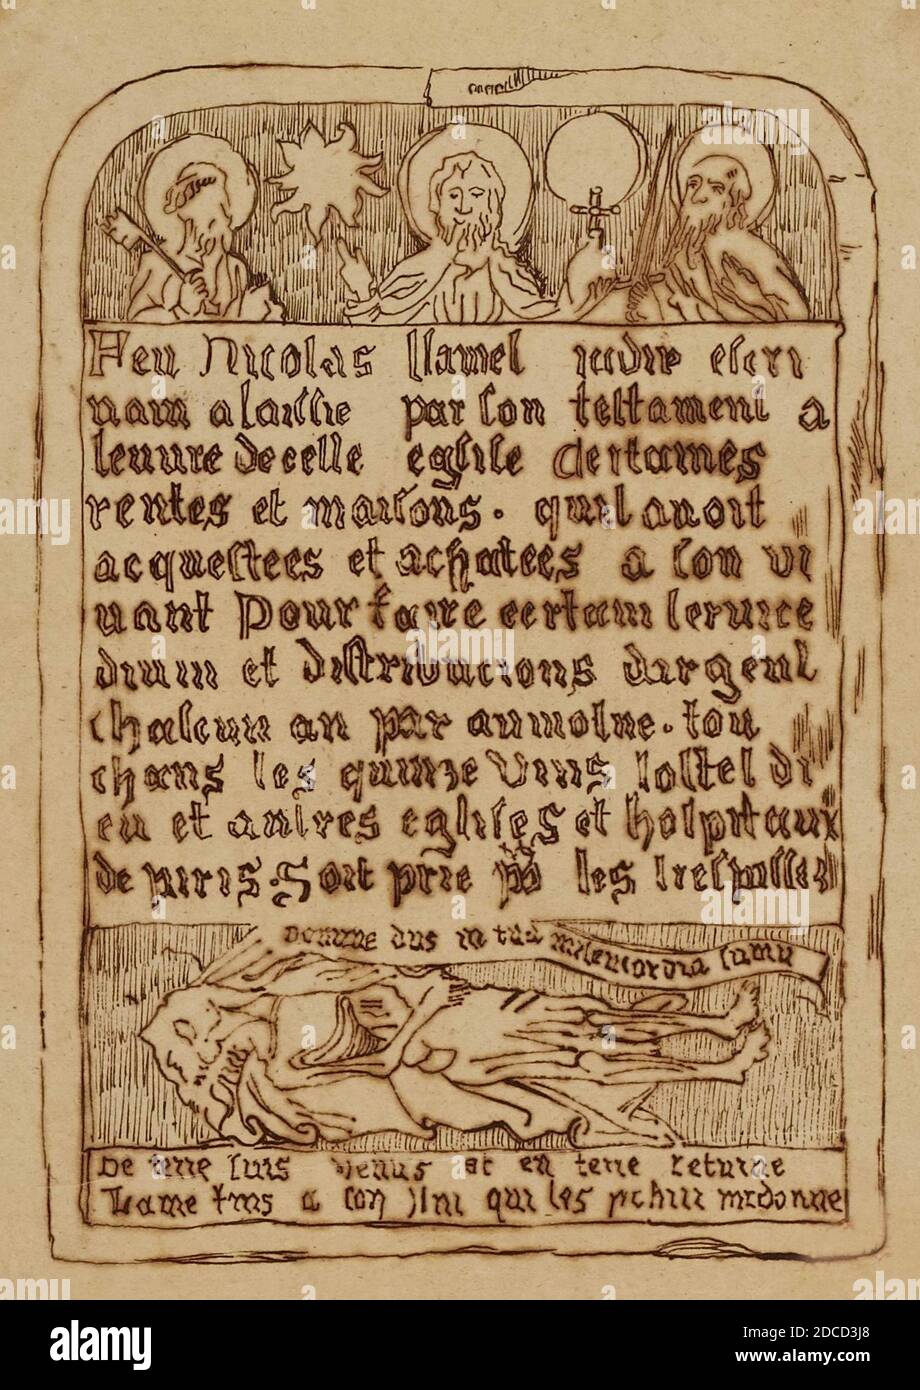 Feu Nicolas flamel iadis escri
uain a laissie par son testament a
leuure de ceste eglise certaines
rentes et maisons. quil auoit
acquestees et achatees a son vi
uant pour faire certain seruice
diuin et distribucions dargent
chascun an par aumosne. tou
chans les quinze vins lostel di
eu et autres eglises et hospitaux
de paris. Soit prie les trespasses
Domine dus in tua misericordia
De terre suis venus et en terre retourne
Lame a toy qui les donne
alamy
Image ID: 2DCD3J8
www.alamy.com